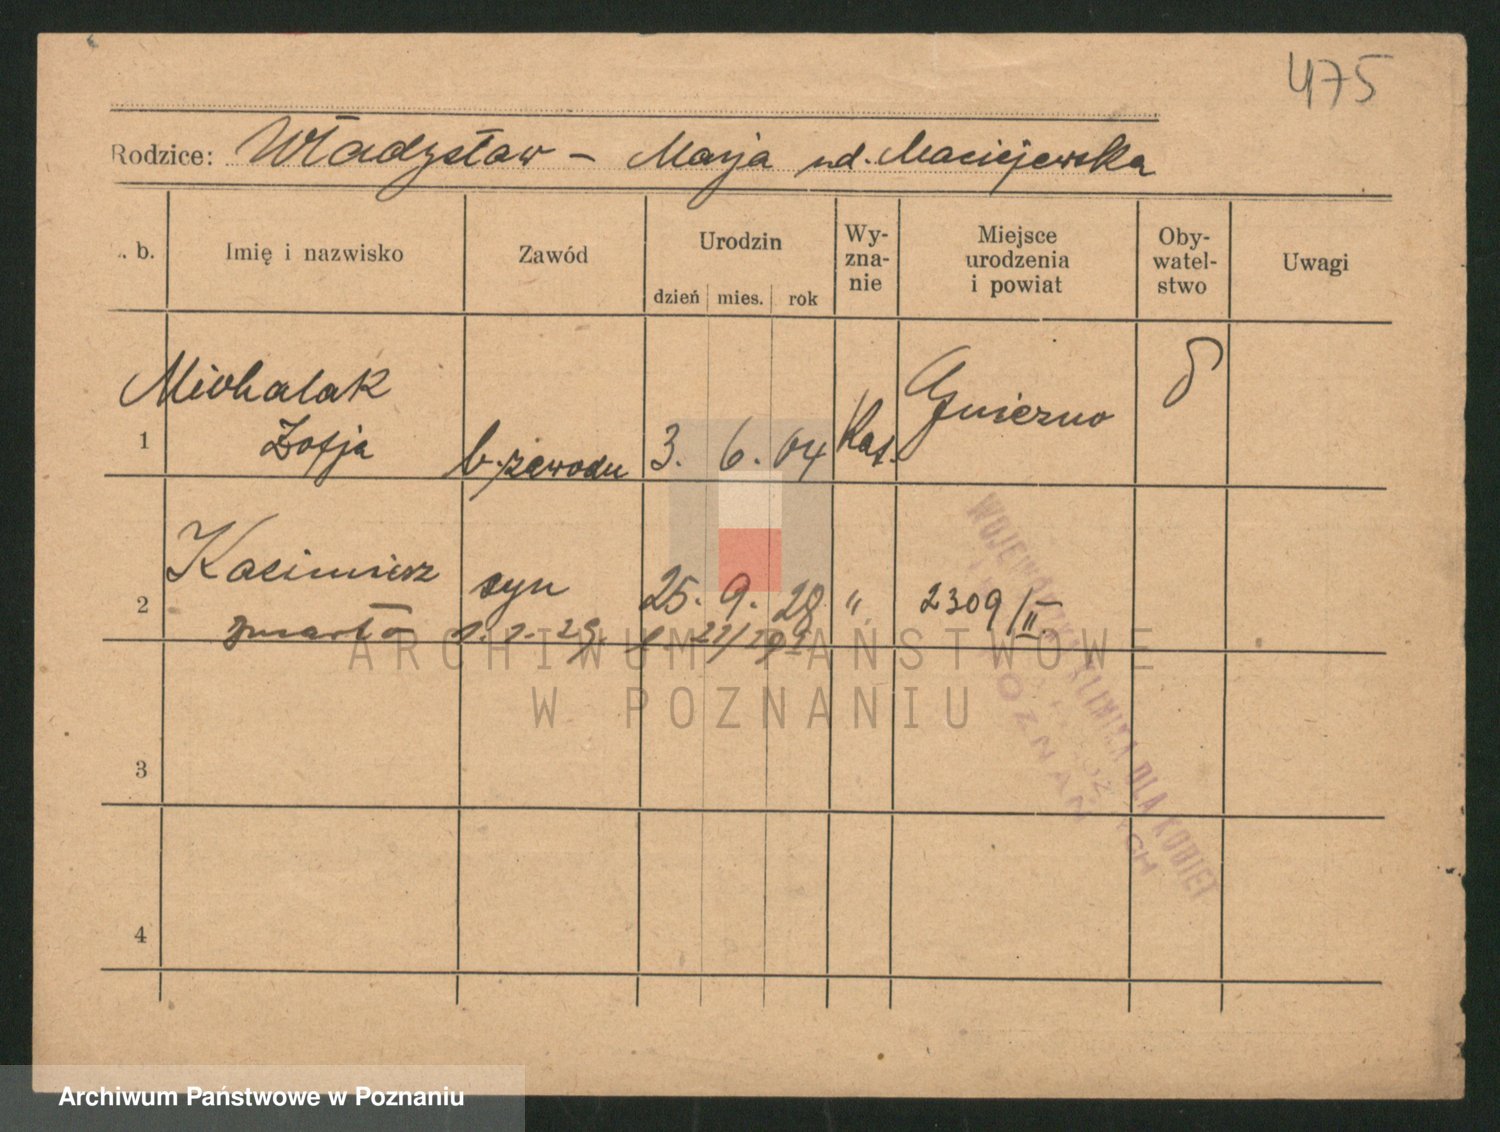 475
Rodzice: Władysław - Marja ud. Maciejewska
. b.
Imię i nazwisko
Zawód
Urodzin
dzień mies. rok
Wy-
zna-
nie
Miejsce
urodzenia
i powiat
Oby-
watel-
stwo
Uwagi
Michalak
1 Zofja b. zawodu 3. 6. 04 Kat. Gniezno
2 Kasimierz syn 25. 9. 28 " 2309/II
zmarło 1. 1. 29.
3
4
WOJEWÓDZKA KLINIKA DLA KOBIET
POZNAŃ
ARCHIWUM PAŃSTWOWE
W POZNANIU
Archiwum Państwowe w Poznaniu